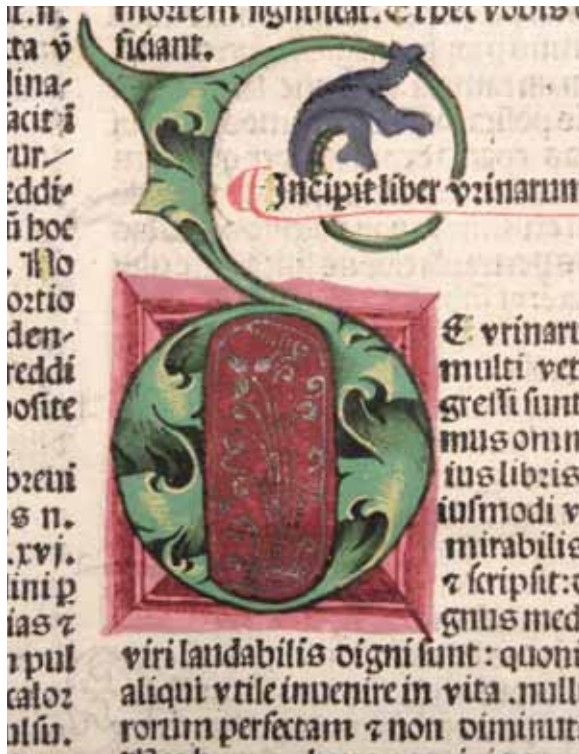 t.n.
cta v̄
lina-
acit ī
ur
reddi-
ū hoc
. No
ortio
den-
reddi
posite
breui
s n.
.xvj.
lini ꝑ
ias ⁊
n pul
calor
ulsu.
mortem significat. Et hec vobis
ficiant.
Incipit liber vrinarum
E vrinaru
multi vet
gressi sunt
mus omn
ius libris
iusmodi v
mirabilis
⁊ scripsit:
gnus med
viri laudabilis digni sunt: quoni
aliqui vtile inuenire in vita .null
rorum perfectam ⁊ non diminut